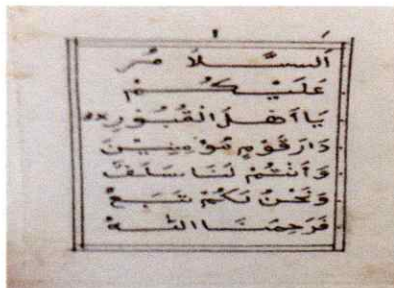 اَلسَّلَامُ
عَلَيْكُمْ
يَا اَهْلَ الْقُبُوْرِ
دَارَ قَوْمٍ مُؤْمِنِيْنَ
وَاَنْتُمْ لَنَا سَلَفٌ
وَنَحْنُ لَكُمْ تَبَعٌ
فَرَحِمَنَا اللهُ